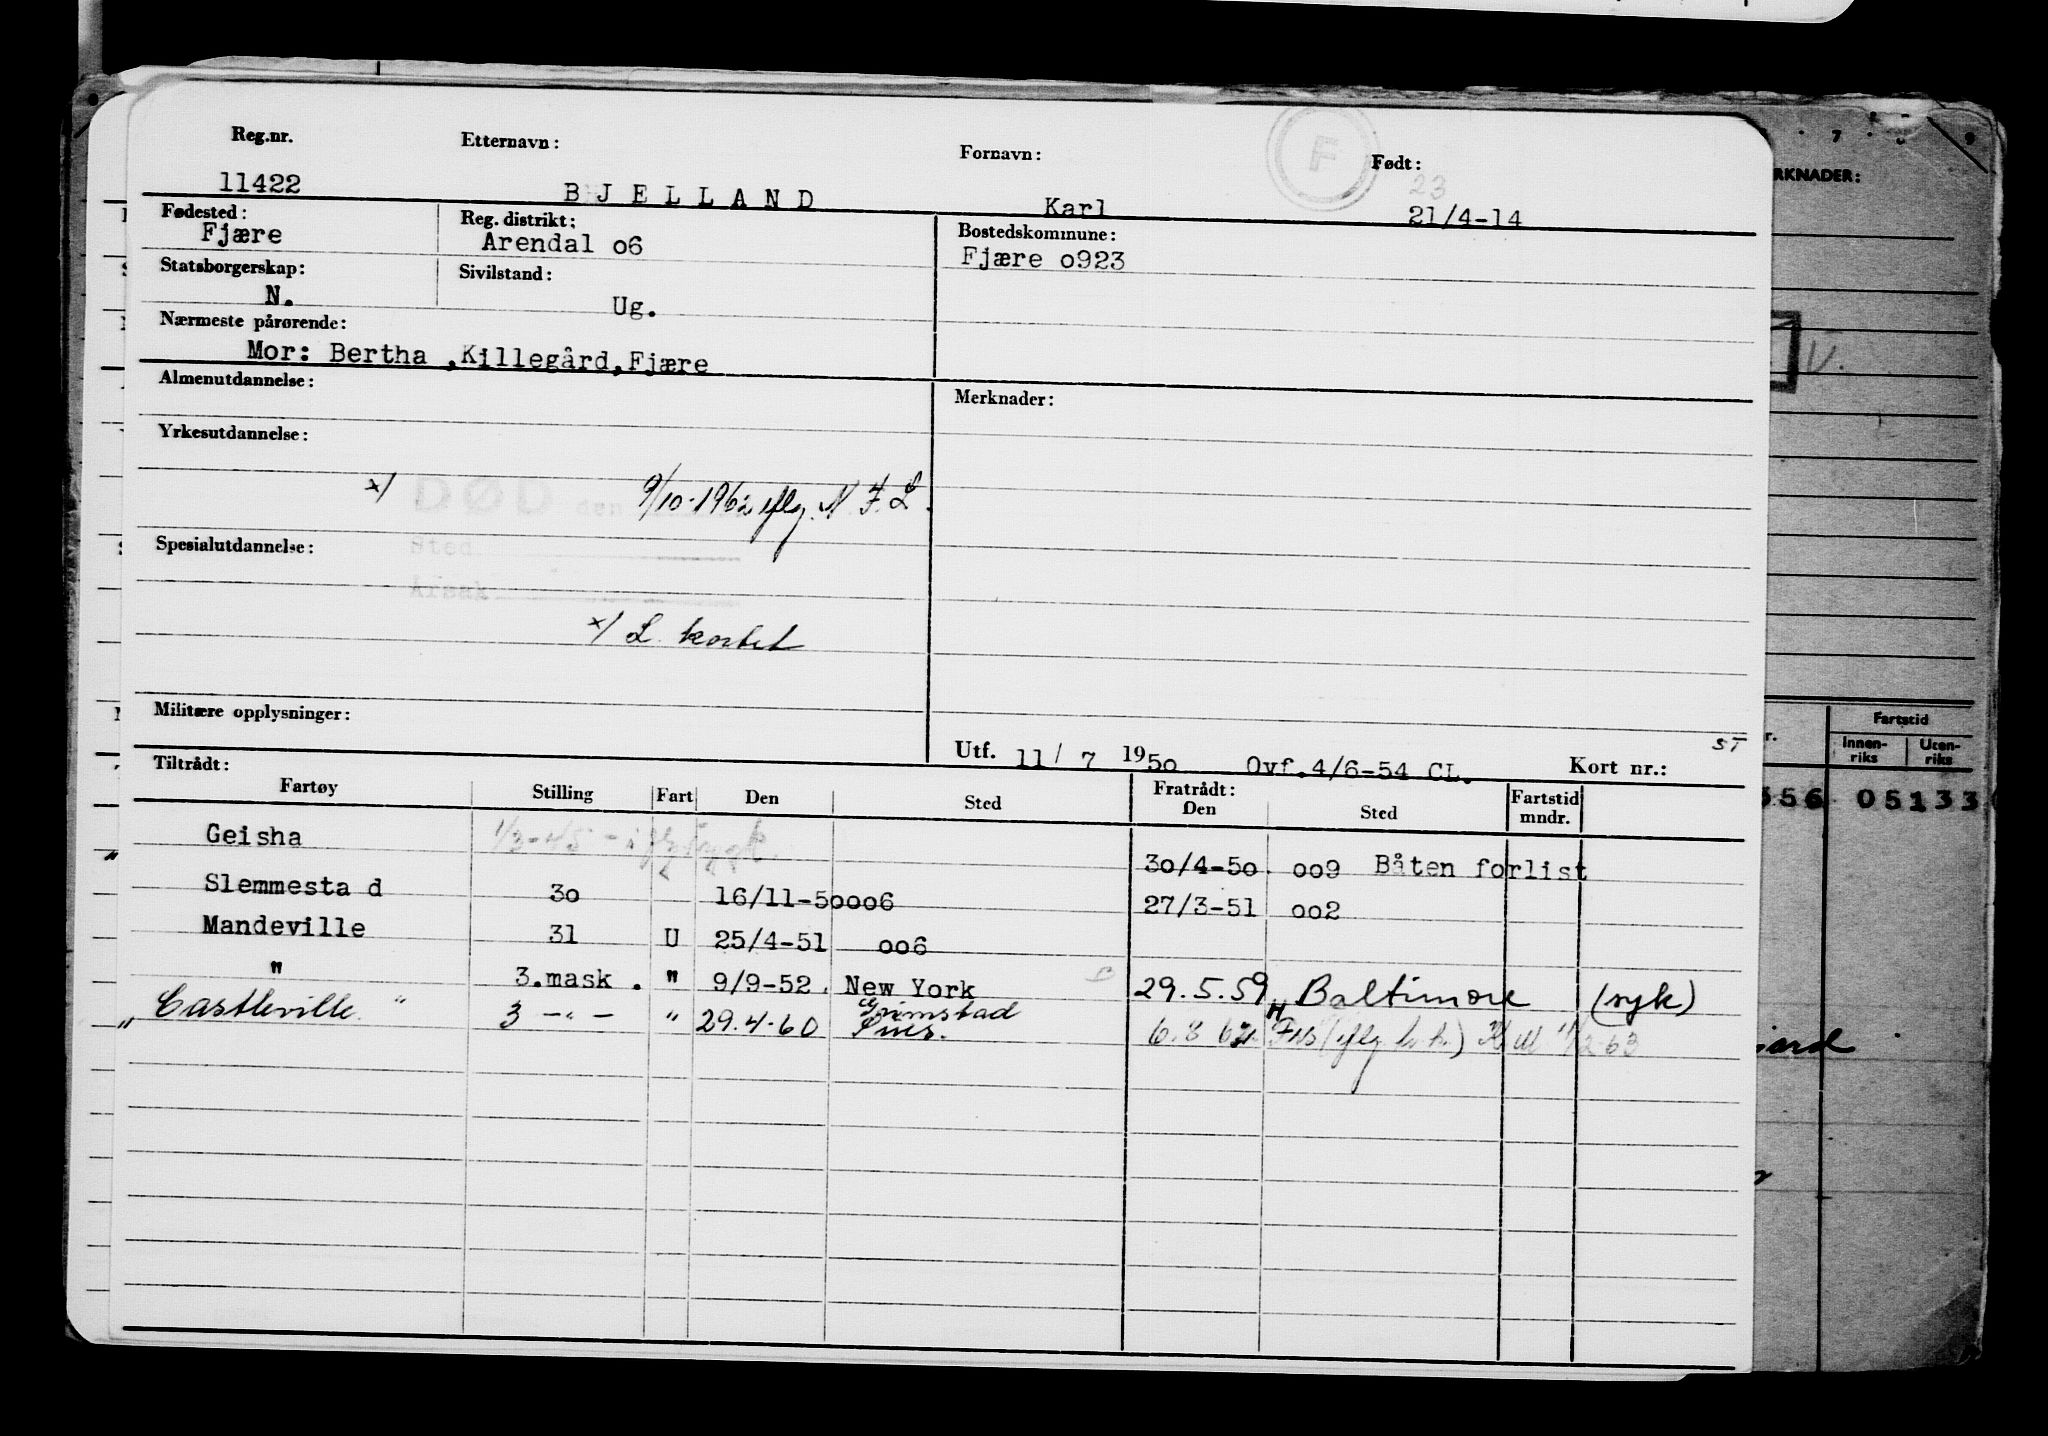 Reg.nr. Etternavn: Fornavn: Født:
F
23
11422 BJELLAND Karl 21/4-14
Fødested: Reg. distrikt: Bostedskommune:
Fjære Arendal o6 Fjære o923
Statsborgerskap: Sivilstand:
N. Ug.
Nærmeste pårørende:
Mor: Bertha ,Killegård,Fjære
Almenutdannelse: Merknader:
Yrkesutdannelse:
x/ DØD den 9/10-1962 iflg. N.F.L.
Spesialutdannelse: Sted
Årsak
x/ L. kortet
Militære opplysninger:
ST
Utf. 11/ 7 1950 Ovf.4/6-54 CL. Kort nr.:
Tiltrådt: Fratrådt:
Fartøy Stilling Fart Den Sted Den Sted Fartstid mndr.
Geisha 1/3-45 - 30/4-50. oo9 Båten forlist
" Slemmesta d 3o 16/11-5ooo6 27/3-51 oo2
Mandeville 31 U 25/4-51 oo6
" 3.mask. " 9/9-52. New York 29.5.59 Baltimore (syk)
" Castleville " 3 -"- " 29.4.60 Grimstad 6.8 62 H
RKNADER:
7 9
V.
Fartstid
r. Innen-riks Uten-riks
556 05133